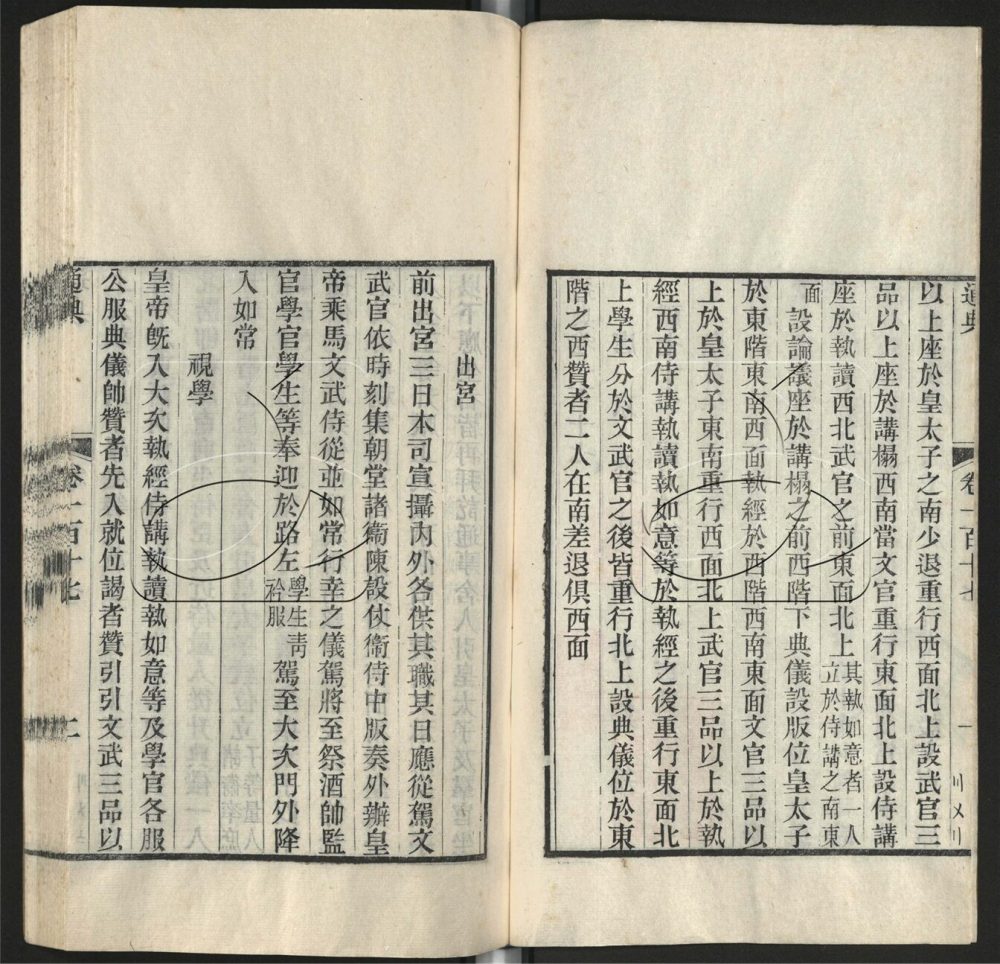 通典
卷一百十七
一
以上座於皇太子之南少退重行西面北上設武官三
品以上座於講榻西南當文官重行東面北上設侍講
座於執讀西北武官之前東面北上其執如意者一人
立於侍講之南東
面
設論議座於講榻之前西階下典儀設版位皇太子
於東階東南西面執經於西階西南東面文官三品以
上於皇太子東南重行西面北上武官三品以上於執
經西南侍講執讀執如意等於執經之後重行東面北
上學生分於文武官之後皆重行北上設典儀位於東
階之西贊者二人在南差退俱西面
出宮
前出宮三日本司宣攝內外各供其職其日應從駕文
武官依時刻集朝堂諸衞陳設仗衞侍中版奏外辦皇
帝乘馬文武侍從並如常行幸之儀駕將至祭酒帥監
官學官學生等奉迎於路左學生青
衿服
駕至大次門外降
入如常
視學
皇帝旣入大次執經侍講執讀執如意等及學官各服
公服典儀帥贊者先入就位謁者贊引引文武三品以
通典
卷一百十七
二